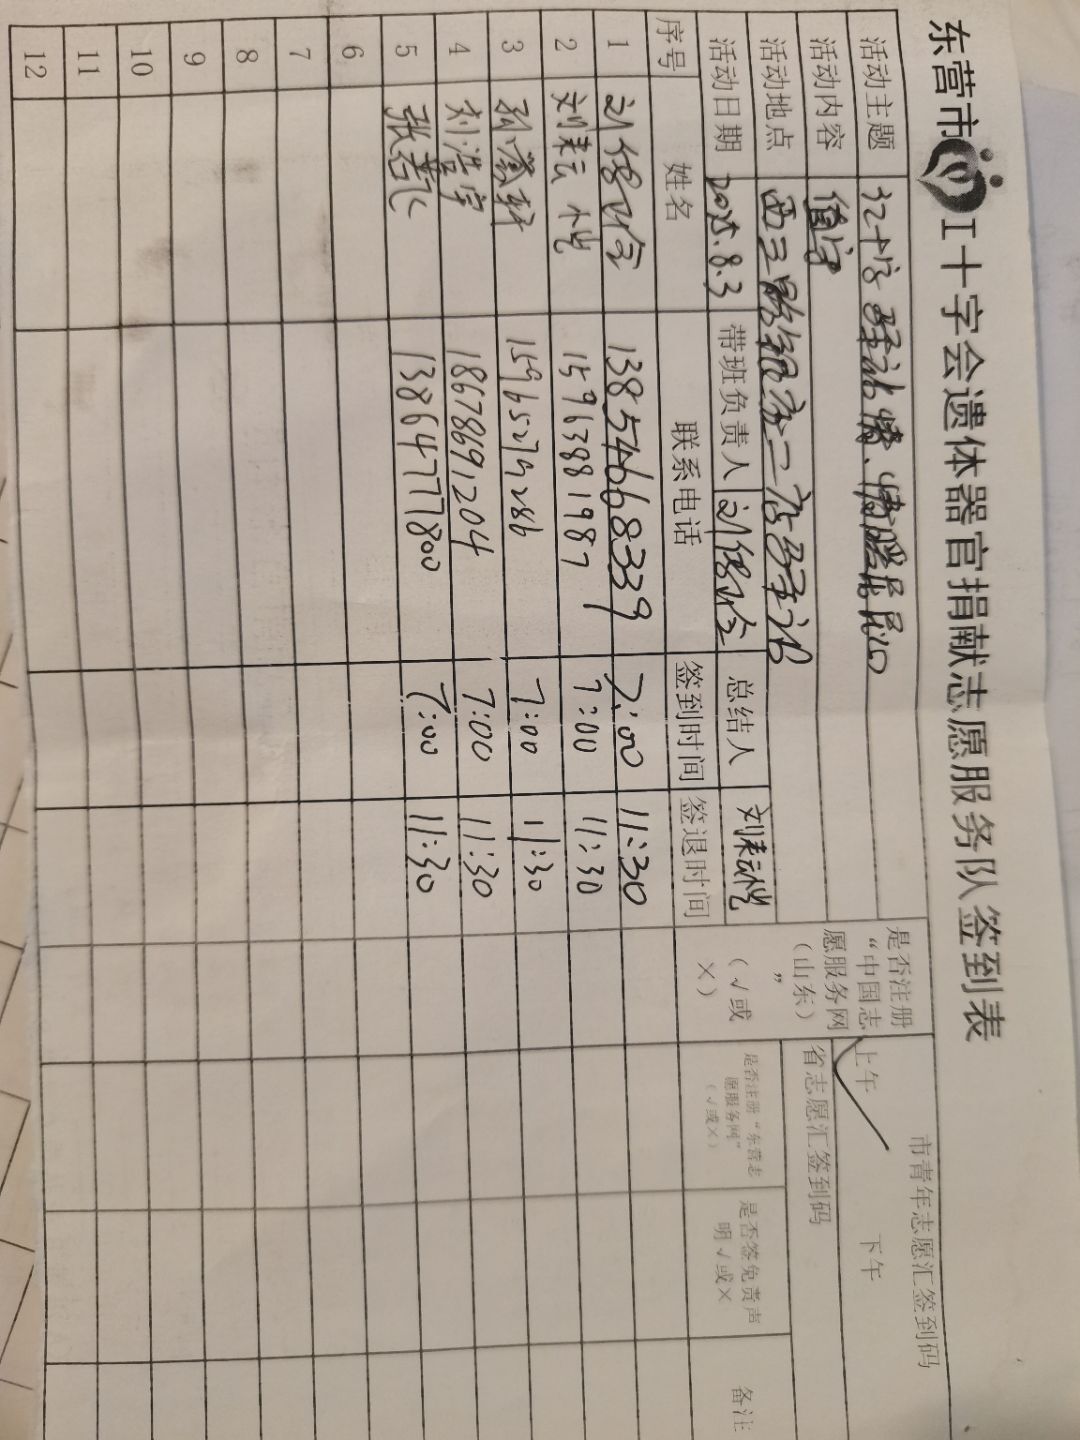 东营市红十字会遗体器官捐献志愿服务队签到表
活动主题 红十字驿站情、情暖民心
市青年志愿汇签到码
活动内容 值守
上午 ✓ 下午
活动地点 西三路银座二店驿站
省志愿汇签到码
活动日期 2025.8.3 带班负责人 总结人 刘耘悦
是否注册“中国志愿服务网(山东)”(√或×)
是否注册“东营志愿服务网”(√或×)
是否签免责声明√或×
备注
序号 姓名 联系电话 签到时间 签退时间
1 13854668339 7:00 11:30
2 刘耘悦 15963881987 7:00 11:30
3 15965279286 7:00 11:30
4 刘浩宇 18678691204 7:00 11:30
5 张 13864777800 7:00 11:30
6
7
8
9
10
11
12